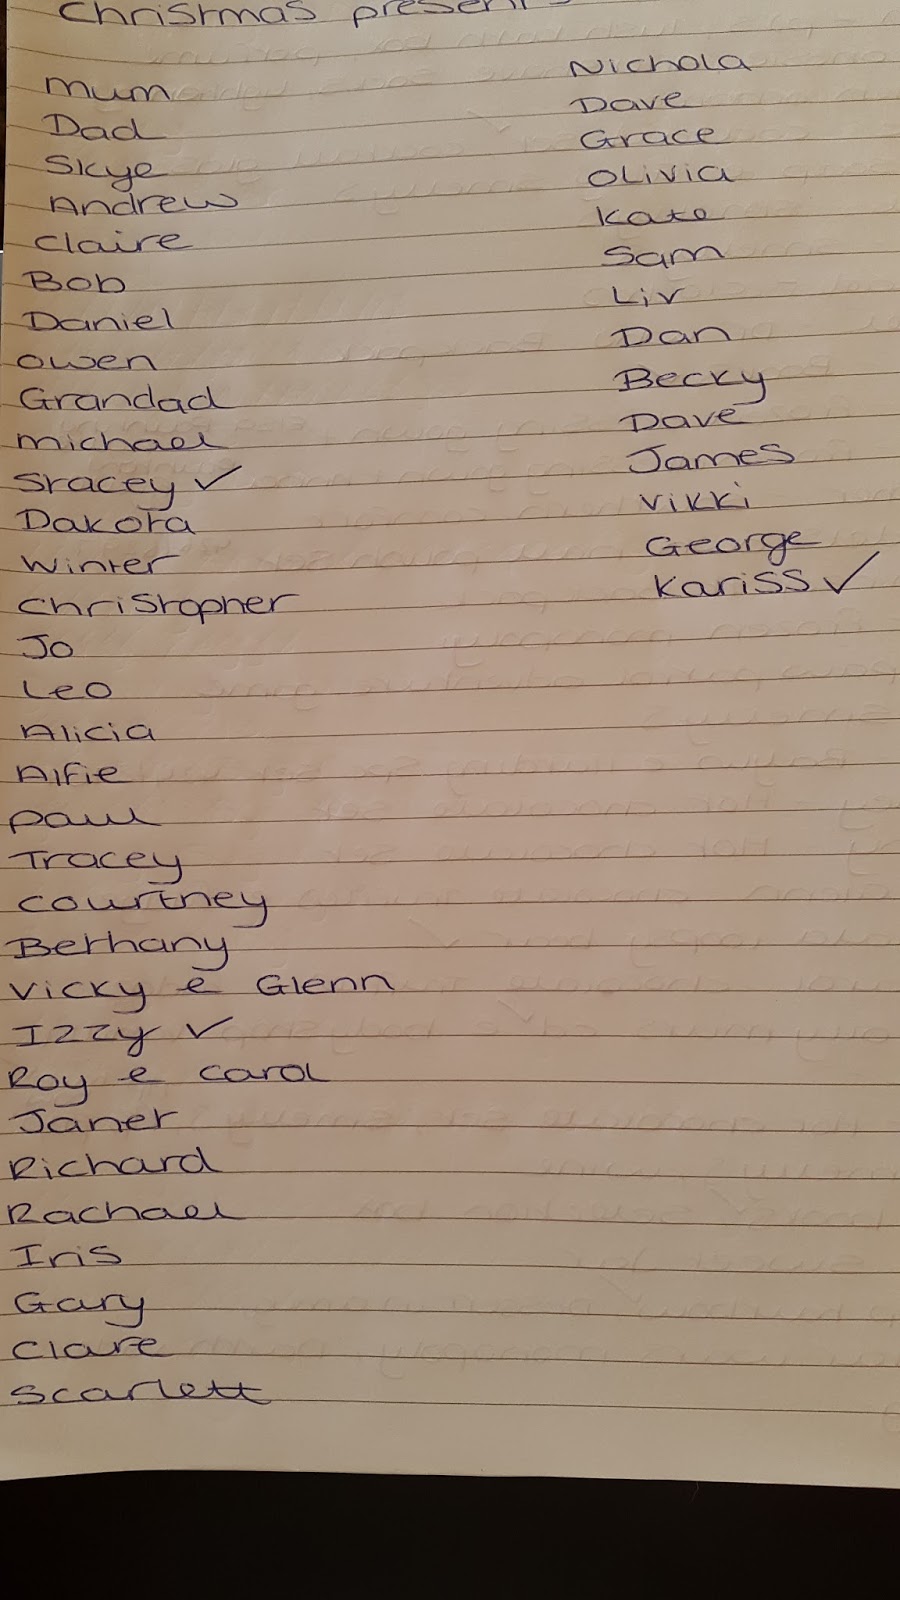 Christmas presents
Mum
Dad
Skye
Andrew
Claire
Bob
Daniel
Owen
Grandad
Michael
Stacey ✓
Dakota
Winter
Christopher
Jo
Leo
Alicia
Alfie
Paul
Tracey
Courtney
Bethany
Vicky & Glenn
Izzy ✓
Roy & Carol
Janet
Richard
Rachael
Iris
Gary
Clare
Scarlett
Nichola
Dave
Grace
Olivia
Kate
Sam
Liv
Dan
Becky
Dave
James
Vikki
George
Kariss ✓